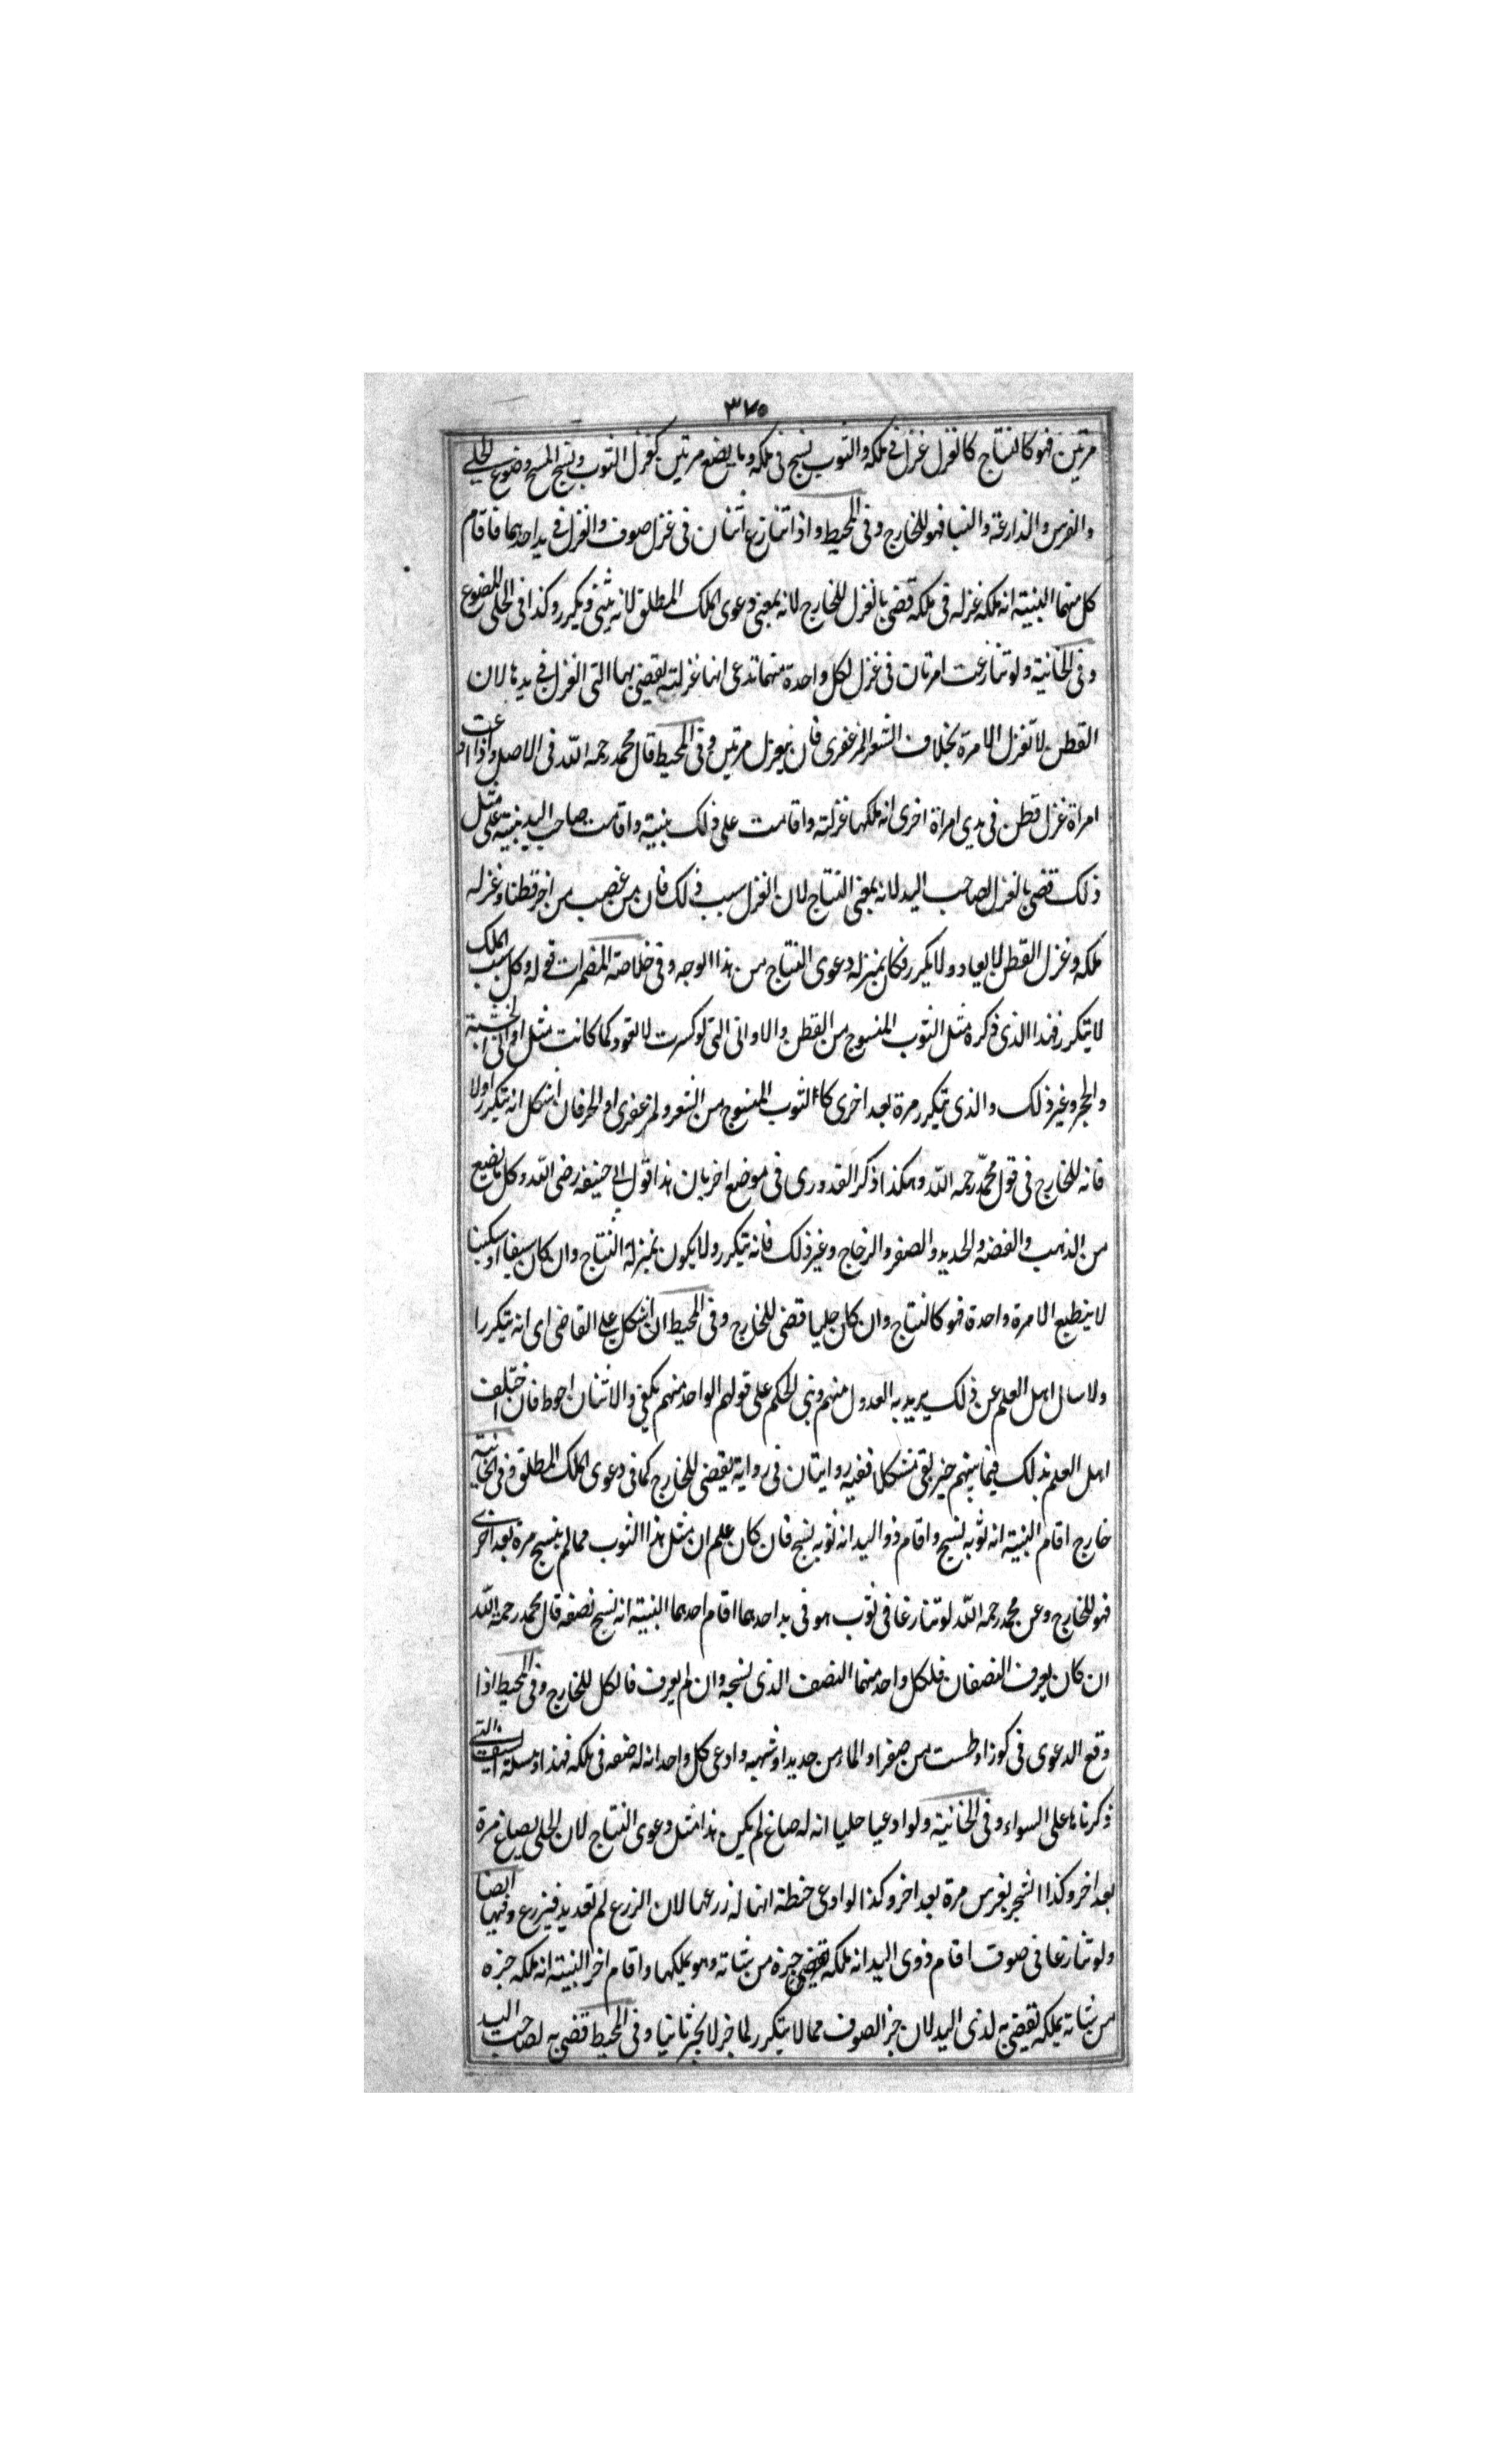 ٣٧٥
مرتين فهو كالنتاج كالغزل غزل فى ملكه والثوب نسج فى ملكه وما يصنع مرتين كغزل الثوب ونسج المسح وضوع الحلى
والغرس والذارعة والنبا فهو للخارج وفى المحيط واذا تنازع اثنان فى غزل صوف والغزل فى يد احدهما فاقام
كل منهما البينة انه ملكه غزله فى ملكه قضى بالغزل للخارج لانه بمعنى دعوى الملك المطلق لانه يثنى ويكرر وكذا فى الحلى المصنوع
وفى الخانية ولو تنازعت امرتان فى غزل لكل واحدة منهما تدعى انها غزلته يقضى بها التى الغزل فى يدها لان
القطن لا تغزل الا مرة بخلاف الشعر المرعزى فان يغزل مرتين وفى المحيط قال محمد رحمه الله فى الاصل واذا ادعت
امراة غزل قطن فى يدى امراة اخرى انه ملكها غزلته واقامت على ذلك بينة واقامت صاحب اليد بينة على مثل
ذلك قضى بالغزل لصاحب اليد لانه بمعنى النتاج لان الغزل سبب ذلك فان من غصب من اخر قطنا وغزله
ملكه وغزل القطن لا يعاد ولا يكرر فكان بمنزله دعوى النتاج من هذا الوجه وفى خلاصة المضمرات قوله وكل سبب الملك
لا يتكرر فهذا الذى ذكره مثل الثوب المنسوج من القطن والاوانى التى لو كسرت لا تعود كما كانت مثل اوانى الخشبة
والحجر وغير ذلك والذى يتكرر مرة بعد اخرى كالثوب المنسوج من الشعر ولمرعزى او الخز فان اشكل انه يتكرر اولا
فانه للخارج فى قول محمد رحمه الله وهكذا ذكر القدورى فى موضع اخر بان هذا قول ابى حنيفه رضى الله وكل ما يصنع
من الذهب والفضه والحديد والصفر والزجاج وغير ذلك فانه يتكرر ولا يكون بمنزلة النتاج وان كان سيفا او سكينا
لا ينطبع الا مرة واحدة فهو كالنتاج وان كان حليا قضى للخارج وفى المحيط ان اشكل على القاضى اى انه يتكرر ا
ولا سال اهل العلم عن ذلك يريد به العدول منهم وبنى الحكم على قولهم الواحد منهم يكفى والاثنان احوط فان اختلف
اهل العلم بذلك فيما بينهم حيز بقى مشكلا ففيه روايتان فى رواية يقضى للخارج كما فى دعوى الملك المطلق وفى الخانية
خارج اقام البينة انه ثوبه نسج واقام ذو اليد انه ثوبه نسج فان كان علم ان مثل هذا الثوب مما لم ينسج مرة بعد اخرى
فهو للخارج وعن محمد رحمه الله لو تنازعا فى ثوب هو فى يد احدهما اقام احدهما البينة انه نسج نصفه قال محمد رحمه الله
ان كان يعرف النصفان فلكل واحد منهما النصف الذى نسجه وان لم يعرف فالكل للخارج وفى المحيط اذا
وقع الدعوى فى كوز او طست من صفر او اناء من حديد او شبهه وادعى كل واحد انه له صنعه فى ملكه فهذا ومسئلة السيف التى
ذكرناها على السواء وفى الخانية ولو ادعيا حليا انه له صاغ لم يكن هذا مثل دعوى النتاج لان الحلى يصاغ مرة
بعد اخر وكذا الشجر يغرس مرة بعد اخر وكذا لو ادعى حنطة انها له زرعها لان الزرع لم تعد يد فيزرع وفيها ايضا
ولو تنازعا فى صوف اقام ذوى اليد انه ملكه جزه من شاته وهو يملكها واقام اخر البينة انه ملكه جزه
من شاته يملكه تقضى به لذى اليد لان جز الصوف مما لا يتكرر لما جز لا يجز ثانيا وفى المحيط قضى به لصاحب اليد